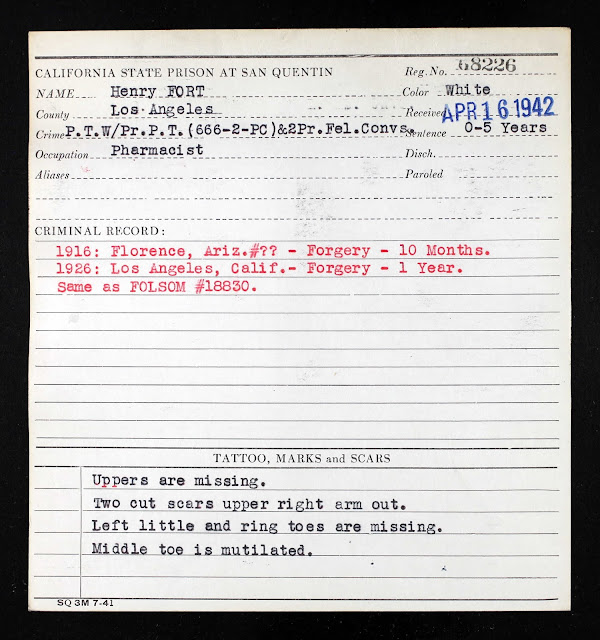 CALIFORNIA STATE PRISON AT SAN QUENTIN Reg. No. 68226
NAME Henry FORT Color White
County Los Angeles Received APR 16 1942
Crime P.T.W/Pr.P.T.(666-2-PC)&2Pr.Fel.Convs. Sentence 0-5 Years
Occupation Pharmacist Disch.
Aliases Paroled
CRIMINAL RECORD:
1916: Florence, Ariz.#?? - Forgery - 10 Months.
1926: Los Angeles, Calif.- Forgery - 1 Year.
Same as FOLSOM #18830.
TATTOO, MARKS and SCARS
Uppers are missing.
Two cut scars upper right arm out.
Left little and ring toes are missing.
Middle toe is mutilated.
SQ 3M 7-41